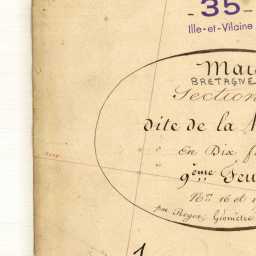 - 35
Ille-et-Vilaine
BRETAGNE
Section
dite de la
En Dix
9ème Feu
Nos 16 et
par Roger, Géomètre